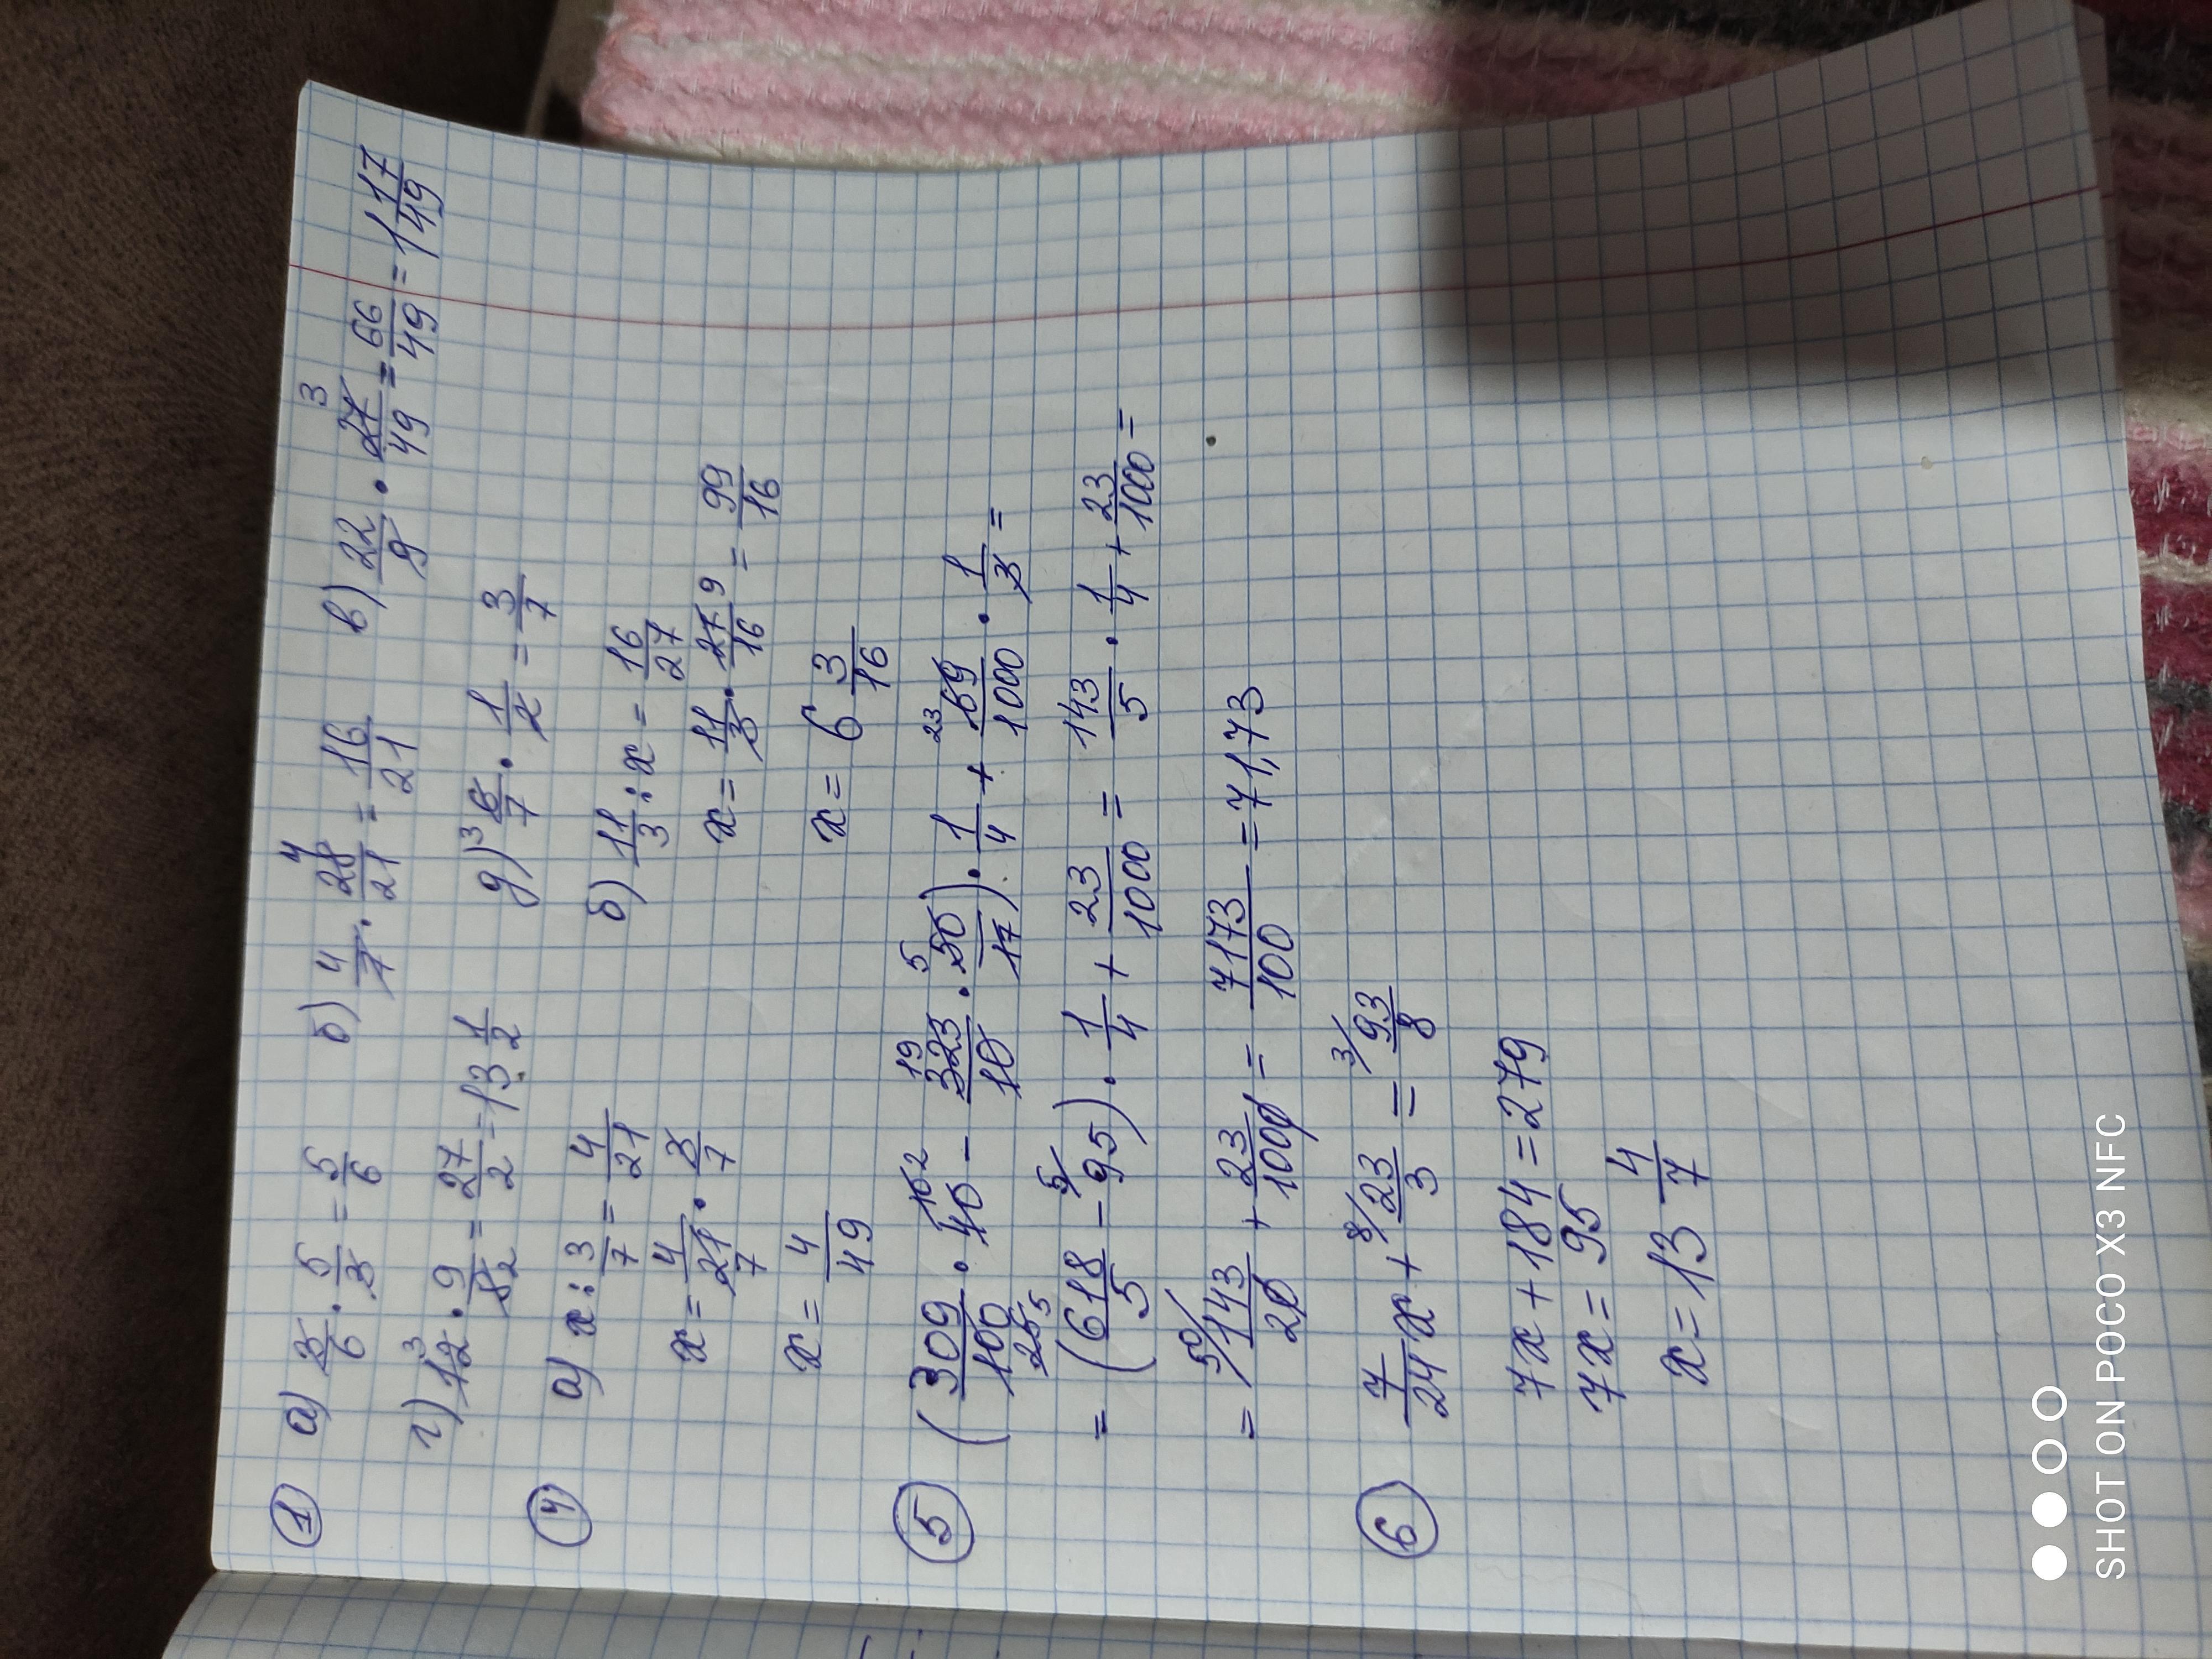 ① а) 3/6 · 5/3 = 5/6 б) 4/7 · 28/21 4 = 16/21 в) 22/9 · 27/49 3 = 66/49 = 1 17/49
г) 12 3 · 9/8 2 = 27/2 = 13 1/2 д) 3 6/7 · 1/2 = 3/7
④ а) x : 3/7 = 4/21 б) 11/3 : x = 16/27
x = 4/21 7 · 3/7 x = 11/3 · 27/16 9 = 99/16
x = 4/49 x = 6 3/16
⑤ (309/100 25 5 · 40 10 2 − 323/10 19 · 50/17 5) · 1/4 + 69/1000 23 · 1/3 =
= (618/5 − 95 5/) · 1/4 + 23/1000 = 143/5 · 1/4 + 23/1000 =
= 50/ 143/20 + 23/1000 = 7173/100 = 71,73
⑥ 7/24 x + 8/ 23/3 = 3/ 93/8
7x + 184 = 279
7x = 95
x = 13 4/7
SHOT ON POCO X3 NFC